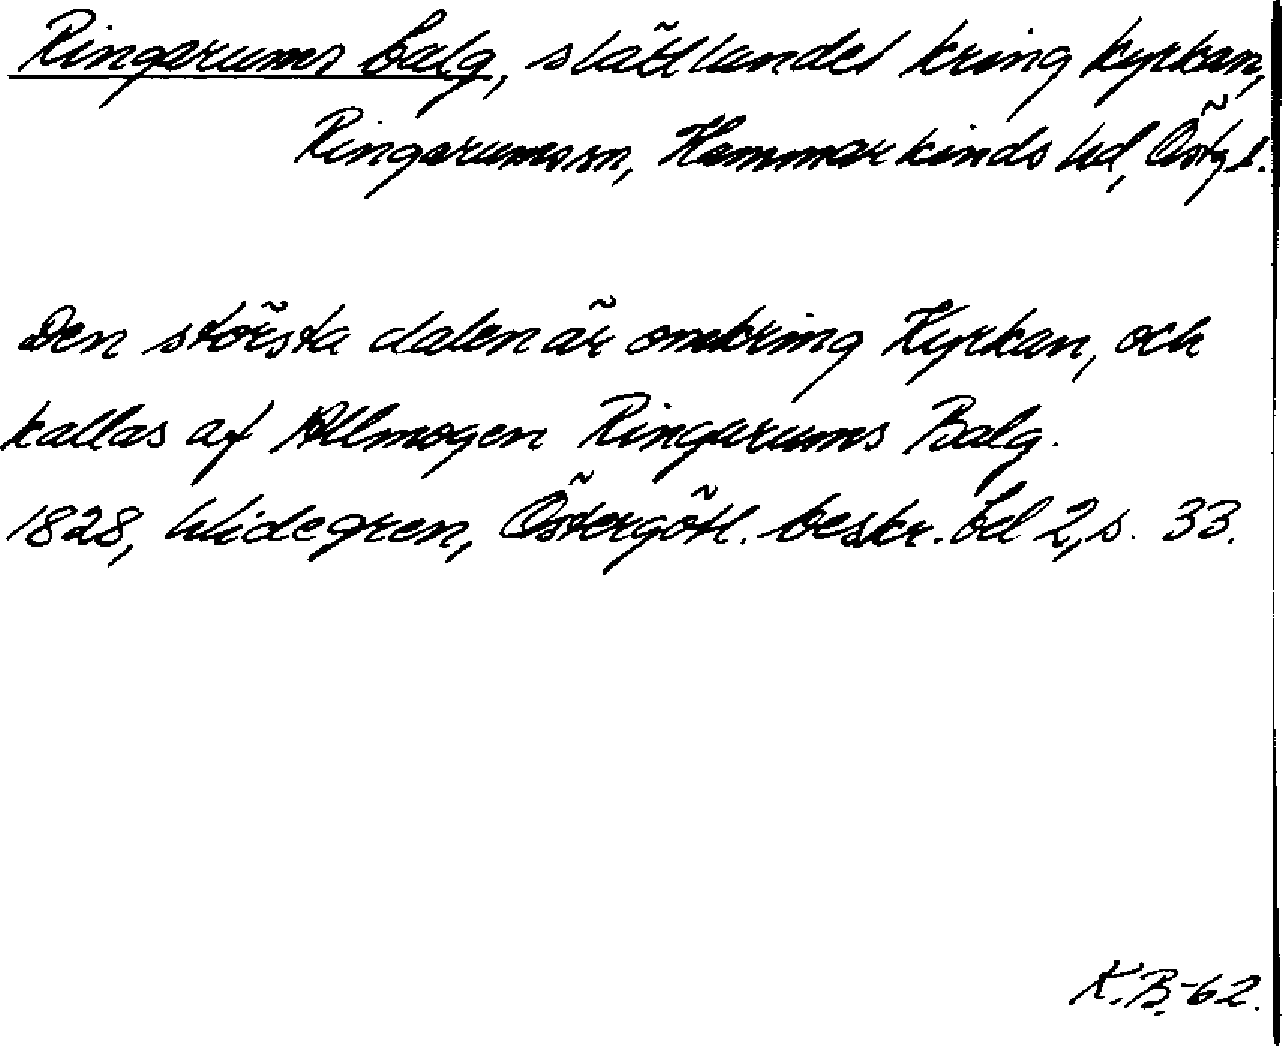 Ringarums balg, slättlandet kring kyrkan,
Ringarums sn, Hammarkinds hd, Östg l.
Den största dalen är omkring Kyrkan, och
kallas af Allmogen Ringarums Balg.
1828, Widegren, Östergötl. beskr. bd 2, s. 33.
K.B.-62.